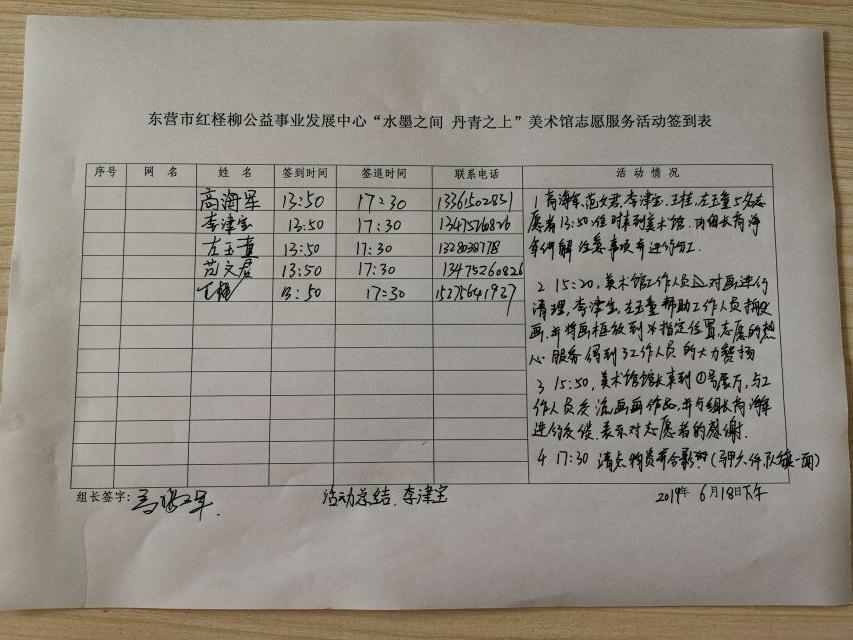 东营市红柽柳公益事业发展中心“水墨之间 丹青之上”美术馆志愿服务活动签到表
序号 网 名 姓 名 签到时间 签退时间 联系电话 活 动 情 况
高海军 13:50 17:30 13361502831
李津宝 13:50 17:30 13475260826
左玉童 13:50 17:30 1328038778
范文君 13:50 17:30 13475260826
王桂 13:50 17:30 15275641927
1 高海军、范文君、李津宝、王桂、左玉童5名志
愿者13:50准时来到美术馆,由组长高海
军讲解注意事项并进行分工.
2 15:20,美术馆工作人员 对画进行
清理,李津宝、左玉童帮助工作人员搬
画,并将画框放到 指定位置,志愿的热
心服务得到了工作人员的大力赞扬
3 15:50,美术馆馆长来到①号展厅,与工
作人员交流画画作品,并与组长高海军
进行交谈,表示对志愿者的感谢.
4 17:30 清点物资并合影 (马甲六件,队旗一面)
组长签字: 高海军 活动总结:李津宝 2019年 6月18日下午